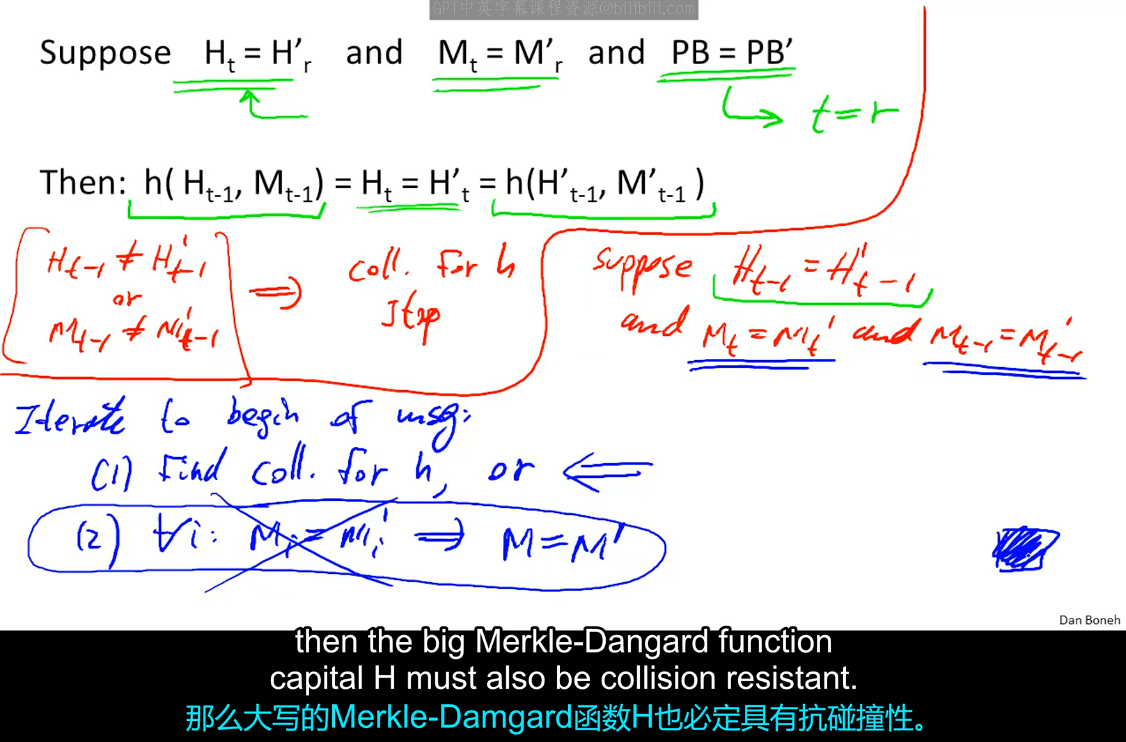 GPT中英字幕课程资源@bilibili.com
Suppose H_t = H'_r and M_t = M'_r and PB = PB'
t = r
Then: h( H_{t-1}, M_{t-1}) = H_t = H'_t = h(H'_{t-1}, M'_{t-1} )
H_{t-1} ≠ H'_{t-1}
or
M_{t-1} ≠ M'_{t-1}
⇒ coll. for h
stop
suppose H_{t-1} = H'_{t-1}
and M_t = M'_t and M_{t-1} = M'_{t-1}
Iterate to begin of msg:
(1) find coll. for h, or ⇐
(2) ∀i: M_i = M'_i ⇒ M = M'
Dan Boneh
then the big Merkle-Dangard function
capital H must also be collision resistant.
那么大写的Merkle-Damgard函数H也必定具有抗碰撞性。